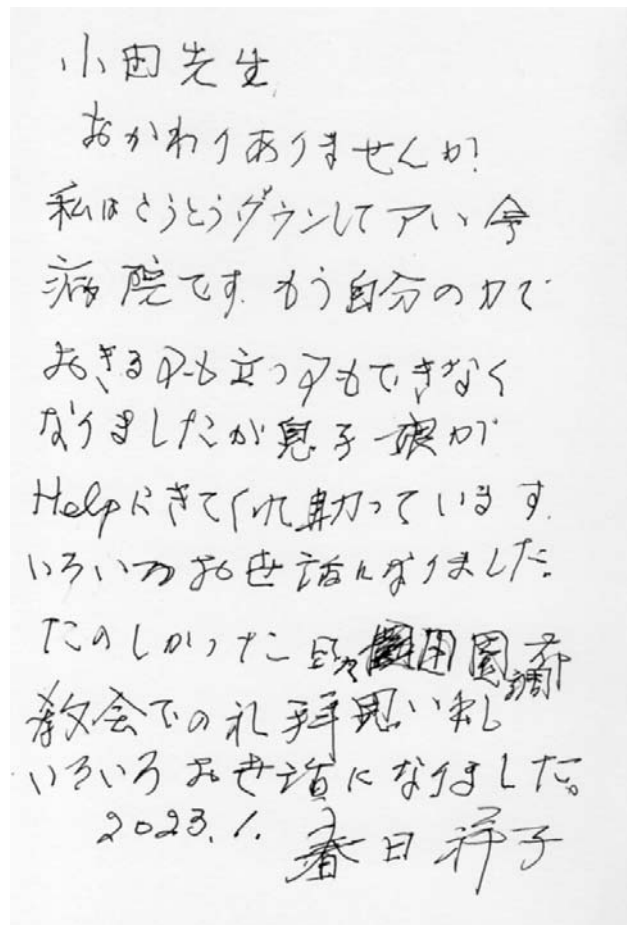 小田先生
おかわりありませんか?
私はとうとうダウンしてアい今
病院です.もう自分の力で
おきるアも立つアもできなく
なりましたが息子娘が
Helpにきてくれ助っています.
いろいろお世話になりました。
たのしかった日々田園調
教会での礼拝思い出し
いろいろお世話になりました。
2023.1. 春日祥子